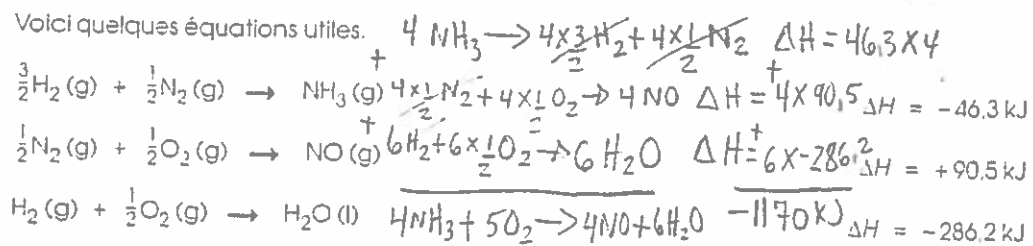 Voici quelques équations utiles. 4 NH₃ → 4×3/2 H₂ + 4×1/2 N₂ ΔH = 46,3 × 4
3/2 H₂ (g) + 1/2 N₂ (g) → NH₃ (g) ΔH = −46,3 kJ
+ 4×1/2 N₂ + 4×1/2 O₂ → 4 NO ΔH = + 4×90,5
1/2 N₂ (g) + 1/2 O₂ (g) → NO (g) ΔH = +90,5 kJ
+ 6H₂ + 6×1/2 O₂ → 6 H₂O ΔH = + 6×−286,2
H₂ (g) + 1/2 O₂ (g) → H₂O (l) ΔH = −286,2 kJ
4NH₃ + 5O₂ → 4NO + 6H₂O −1170 kJ